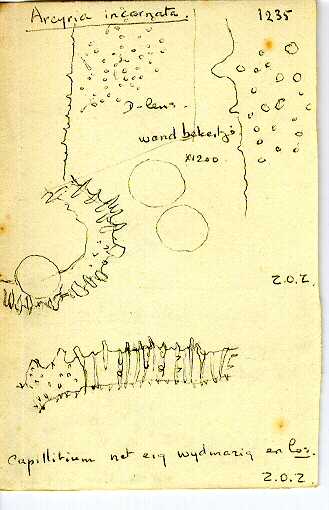 Arcyria incarnata. 1235
D-lens.
wand bekertjs
x1200
Z.O.Z.
Capillitium net erg wydmazig en los.
Z.O.Z.